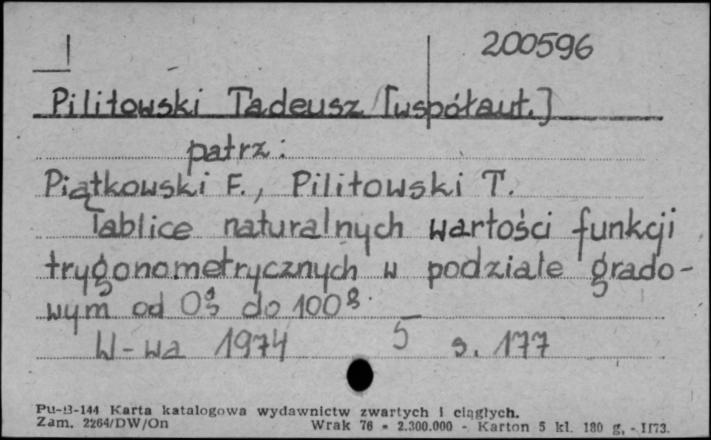 200596
Pilitowski Tadeusz [współaut.]
patrz:
Piątkowski F., Pilitowski T.
Tablice naturalnych wartości funkcji
trygonometrycznych w podziale grado-
wym od 0g do 100g.
W-wa 1974 5 s. 177
Pu-B-144 Karta katalogowa wydawnictw zwartych i ciągłych.
Zam. 2264/DW/On Wrak 76 - 2.300.000 - Karton 5 kl. 180 g. - II73.